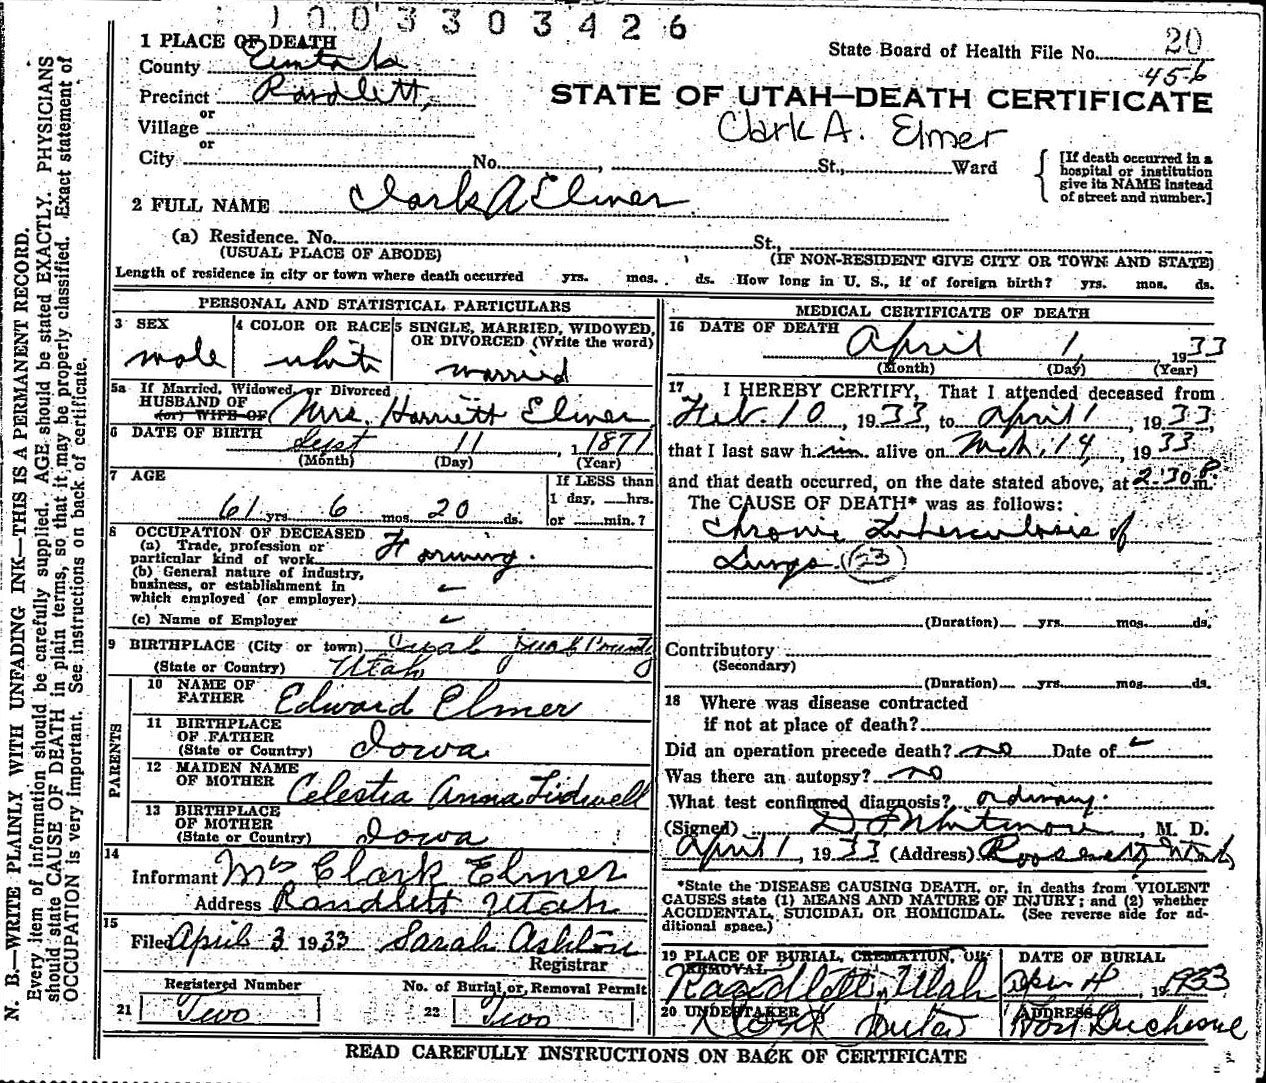 1003303426
1 PLACE OF DEATH
State Board of Health File No. 20
456
County Uintah
Precinct Randlett,
or
Village
or
STATE OF UTAH—DEATH CERTIFICATE
Clark A. Elmer
City No. , St., Ward
[If death occurred in a hospital or institution give its NAME instead of street and number.]
2 FULL NAME Clark A Elmer
(a) Residence. No. St.,
(USUAL PLACE OF ABODE) (IF NON-RESIDENT GIVE CITY OR TOWN AND STATE)
Length of residence in city or town where death occurred yrs. mos. ds. How long in U. S., if of foreign birth? yrs. mos. ds.
PERSONAL AND STATISTICAL PARTICULARS
3 SEX
male
4 COLOR OR RACE
white
5 SINGLE, MARRIED, WIDOWED, OR DIVORCED (Write the word)
married
5a If Married, Widowed, or Divorced
HUSBAND OF
(or) WIFE OF
Mrs. Harriett Elmer
6 DATE OF BIRTH Sept 11, 1871
(Month) (Day) (Year)
7 AGE
61 yrs. 6 mos. 20 ds.
If LESS than
1 day, hrs.
or min.?
8 OCCUPATION OF DECEASED
(a) Trade, profession or
particular kind of work Farming.
(b) General nature of industry,
business, or establishment in
which employed (or employer)
(c) Name of Employer
9 BIRTHPLACE (City or town) County
(State or Country) Utah
PARENTS
10 NAME OF
FATHER Edward Elmer
11 BIRTHPLACE
OF FATHER
(State or Country) Iowa
12 MAIDEN NAME
OF MOTHER Celestia Anna Tidwell
13 BIRTHPLACE
OF MOTHER
(State or Country) Iowa
14
Informant Mrs Clark Elmer
Address Randlett Utah
15
Filed April 3 1933 Sarah Ashton
Registrar
Registered Number
21 Two
No. of Burial or Removal Permit
22 Two
MEDICAL CERTIFICATE OF DEATH
16 DATE OF DEATH April 1, 1933
(Month) (Day) (Year)
17 I HEREBY CERTIFY, That I attended deceased from
Feb. 10, 1933, to April 1, 1933,
that I last saw him alive on Mch. 14, 1933
and that death occurred, on the date stated above, at 2:30 P. m.
The CAUSE OF DEATH* was as follows:
Chronic Tuberculosis of
Lungs (23)
(Duration) yrs. mos. ds.
Contributory
(Secondary)
(Duration) yrs. mos. ds.
18 Where was disease contracted
if not at place of death?
Did an operation precede death? no Date of
Was there an autopsy? no
What test confirmed diagnosis? ordinary.
(Signed) , M. D.
April 1, 1933 (Address) Roosevelt, Utah
*State the DISEASE CAUSING DEATH, or, in deaths from VIOLENT
CAUSES state (1) MEANS AND NATURE OF INJURY; and (2) whether
ACCIDENTAL, SUICIDAL OR HOMICIDAL. (See reverse side for ad-
ditional space.)
19 PLACE OF BURIAL, CREMATION, OR
REMOVAL
Randlett, Utah
DATE OF BURIAL
Apr 4, 1933
20 UNDERTAKER
ADDRESS
Fort Duchesne
READ CAREFULLY INSTRUCTIONS ON BACK OF CERTIFICATE
N. B.—WRITE PLAINLY WITH UNFADING INK—THIS IS A PERMANENT RECORD.
Every item of information should be carefully supplied. AGE should be stated EXACTLY. PHYSICIANS
should state CAUSE OF DEATH in plain terms, so that it may be properly classified. Exact statement of
OCCUPATION is very important. See instructions on back of certificate.